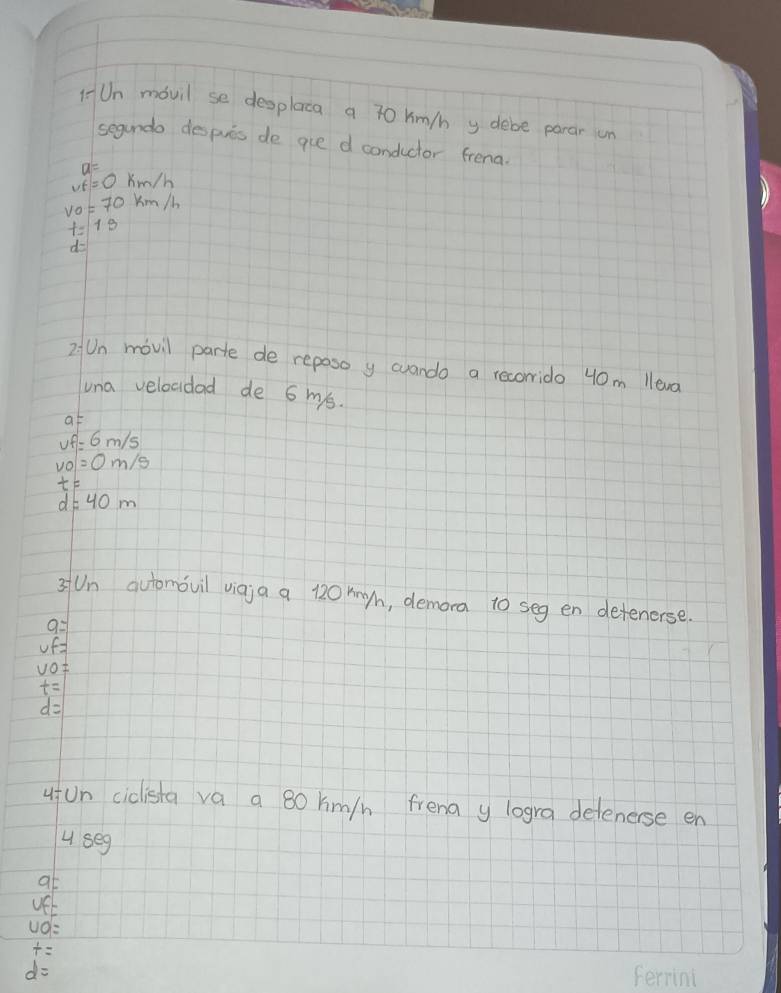 1.- Un móvil se desplaca a 70 km/h y debe parar un
segundo después de que el conductor frena.
a=
vf=0 km/h
vo=70 km/h
t=1s
d=
2.- Un móvil parte de reposo y cuando a recorrido 40m lleva
una velocidad de 6 m/s.
a=
vf=6 m/s
vo=0 m/s
t=
d=40 m
3.- Un automóvil viaja a 120 km/h, demora 10 seg en detenerse.
a=
vf=
vo=
t=
d=
4.- Un ciclista va a 80 km/h frena y logra detenerse en
4 seg
a=
vf=
vo=
t=
d=
Ferrini